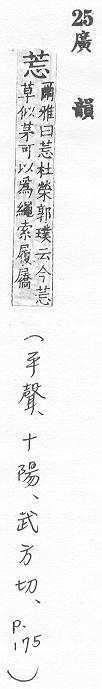 25廣韻
莣
爾雅曰莣杜榮郭璞云今莣
草似茅可以為繩索履屩
(平聲、十陽、武方切、p.175)